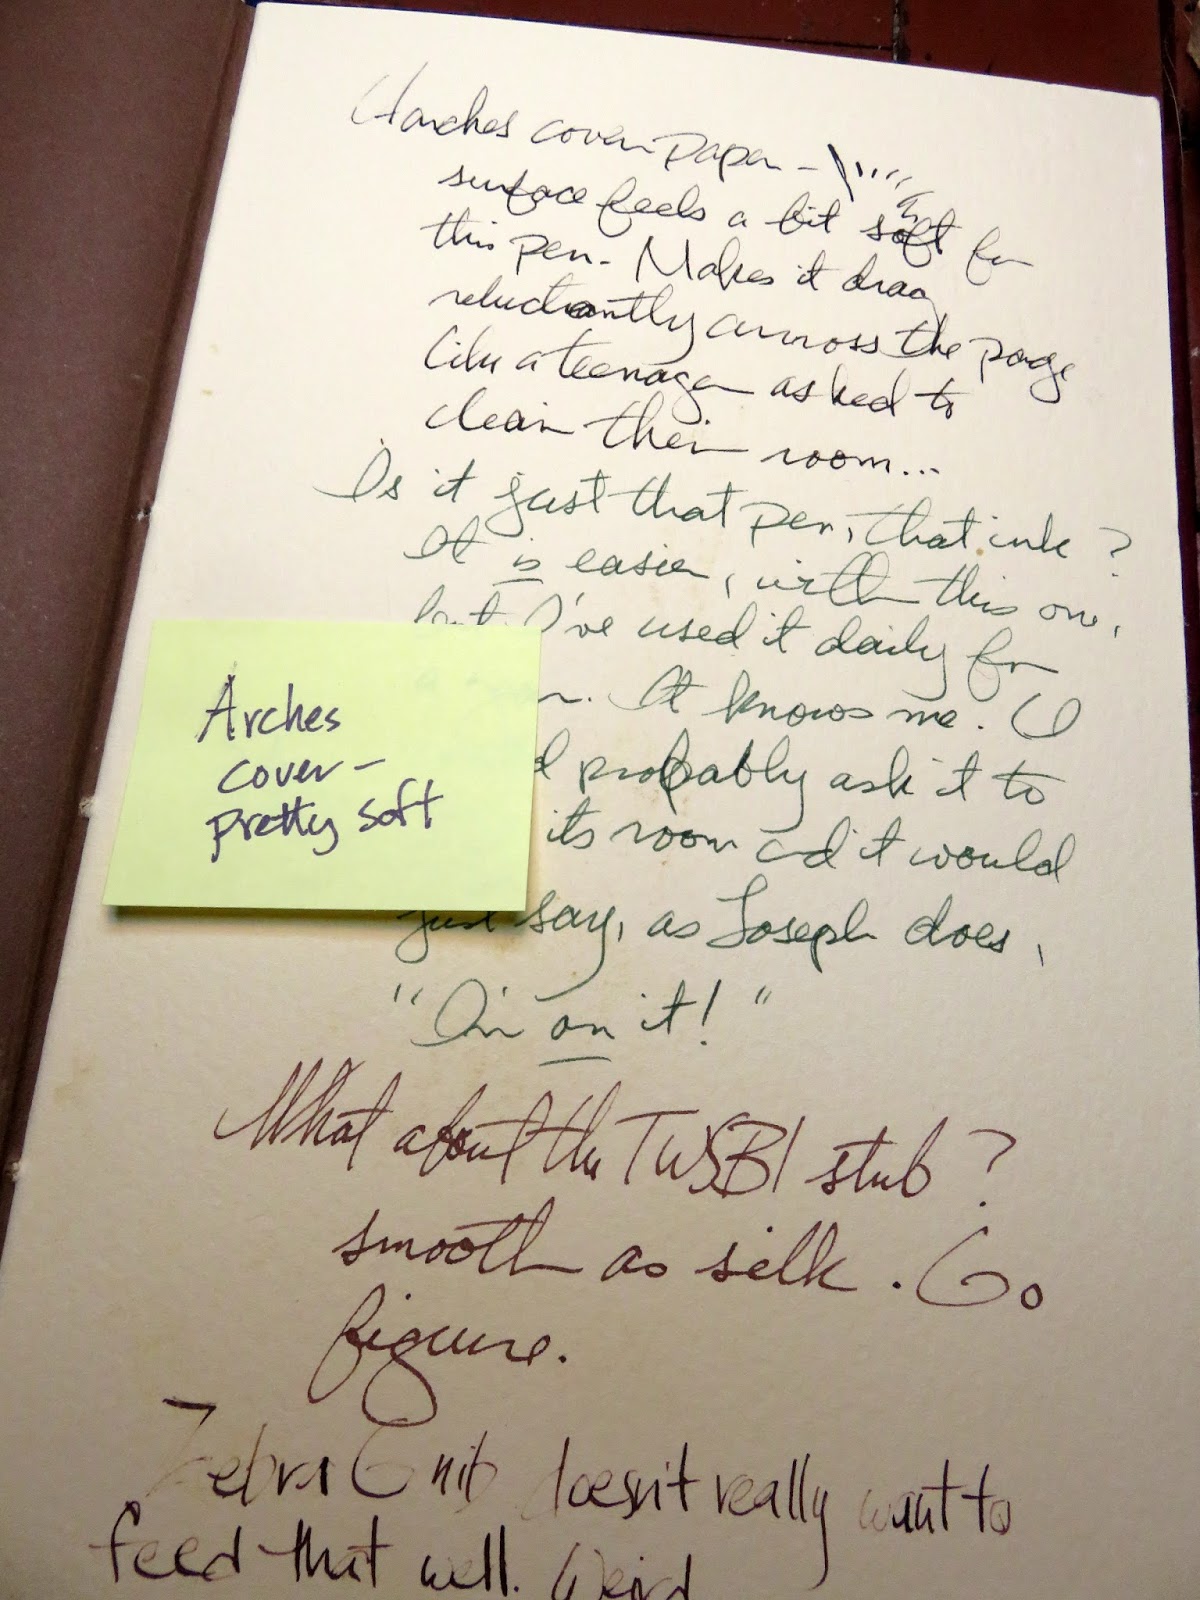 Arches cover paper -
surface feels a bit soft for
this pen. Makes it drag
reluctantly across the page
like a teenager asked to
clean their room...
Is it just that pen, that ink?
It is easier, with this one,
but I've used it daily for
. It knows me. I
probably ask it to
its room and it would
just say, as Joseph does,
"I'm on it!"
What about the TWSBI stub?
smooth as silk. Go
figure.
Zebra G nib doesn't really want to
feed that well. Weird
Arches
cover -
pretty soft